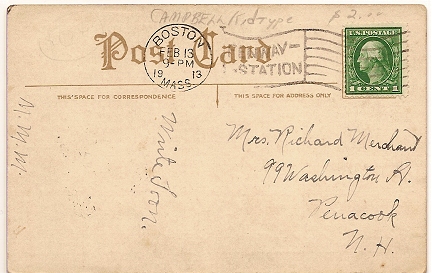 CAMPBELL Kid type $2.00
Post Card
BOSTON
FEB 13
9 - PM
1913
MASS.
STATION
U.S. POSTAGE
1 CENT 1
THIS SPACE FOR CORRESPONDENCE
THIS SPACE FOR ADDRESS ONLY
Write Soon.
Mrs. Richard Merchant
99 Washington St.
Penacook
N. H.